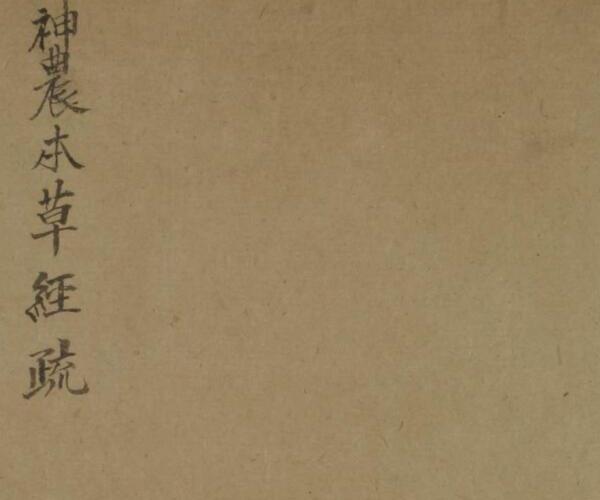 神農本草經疏